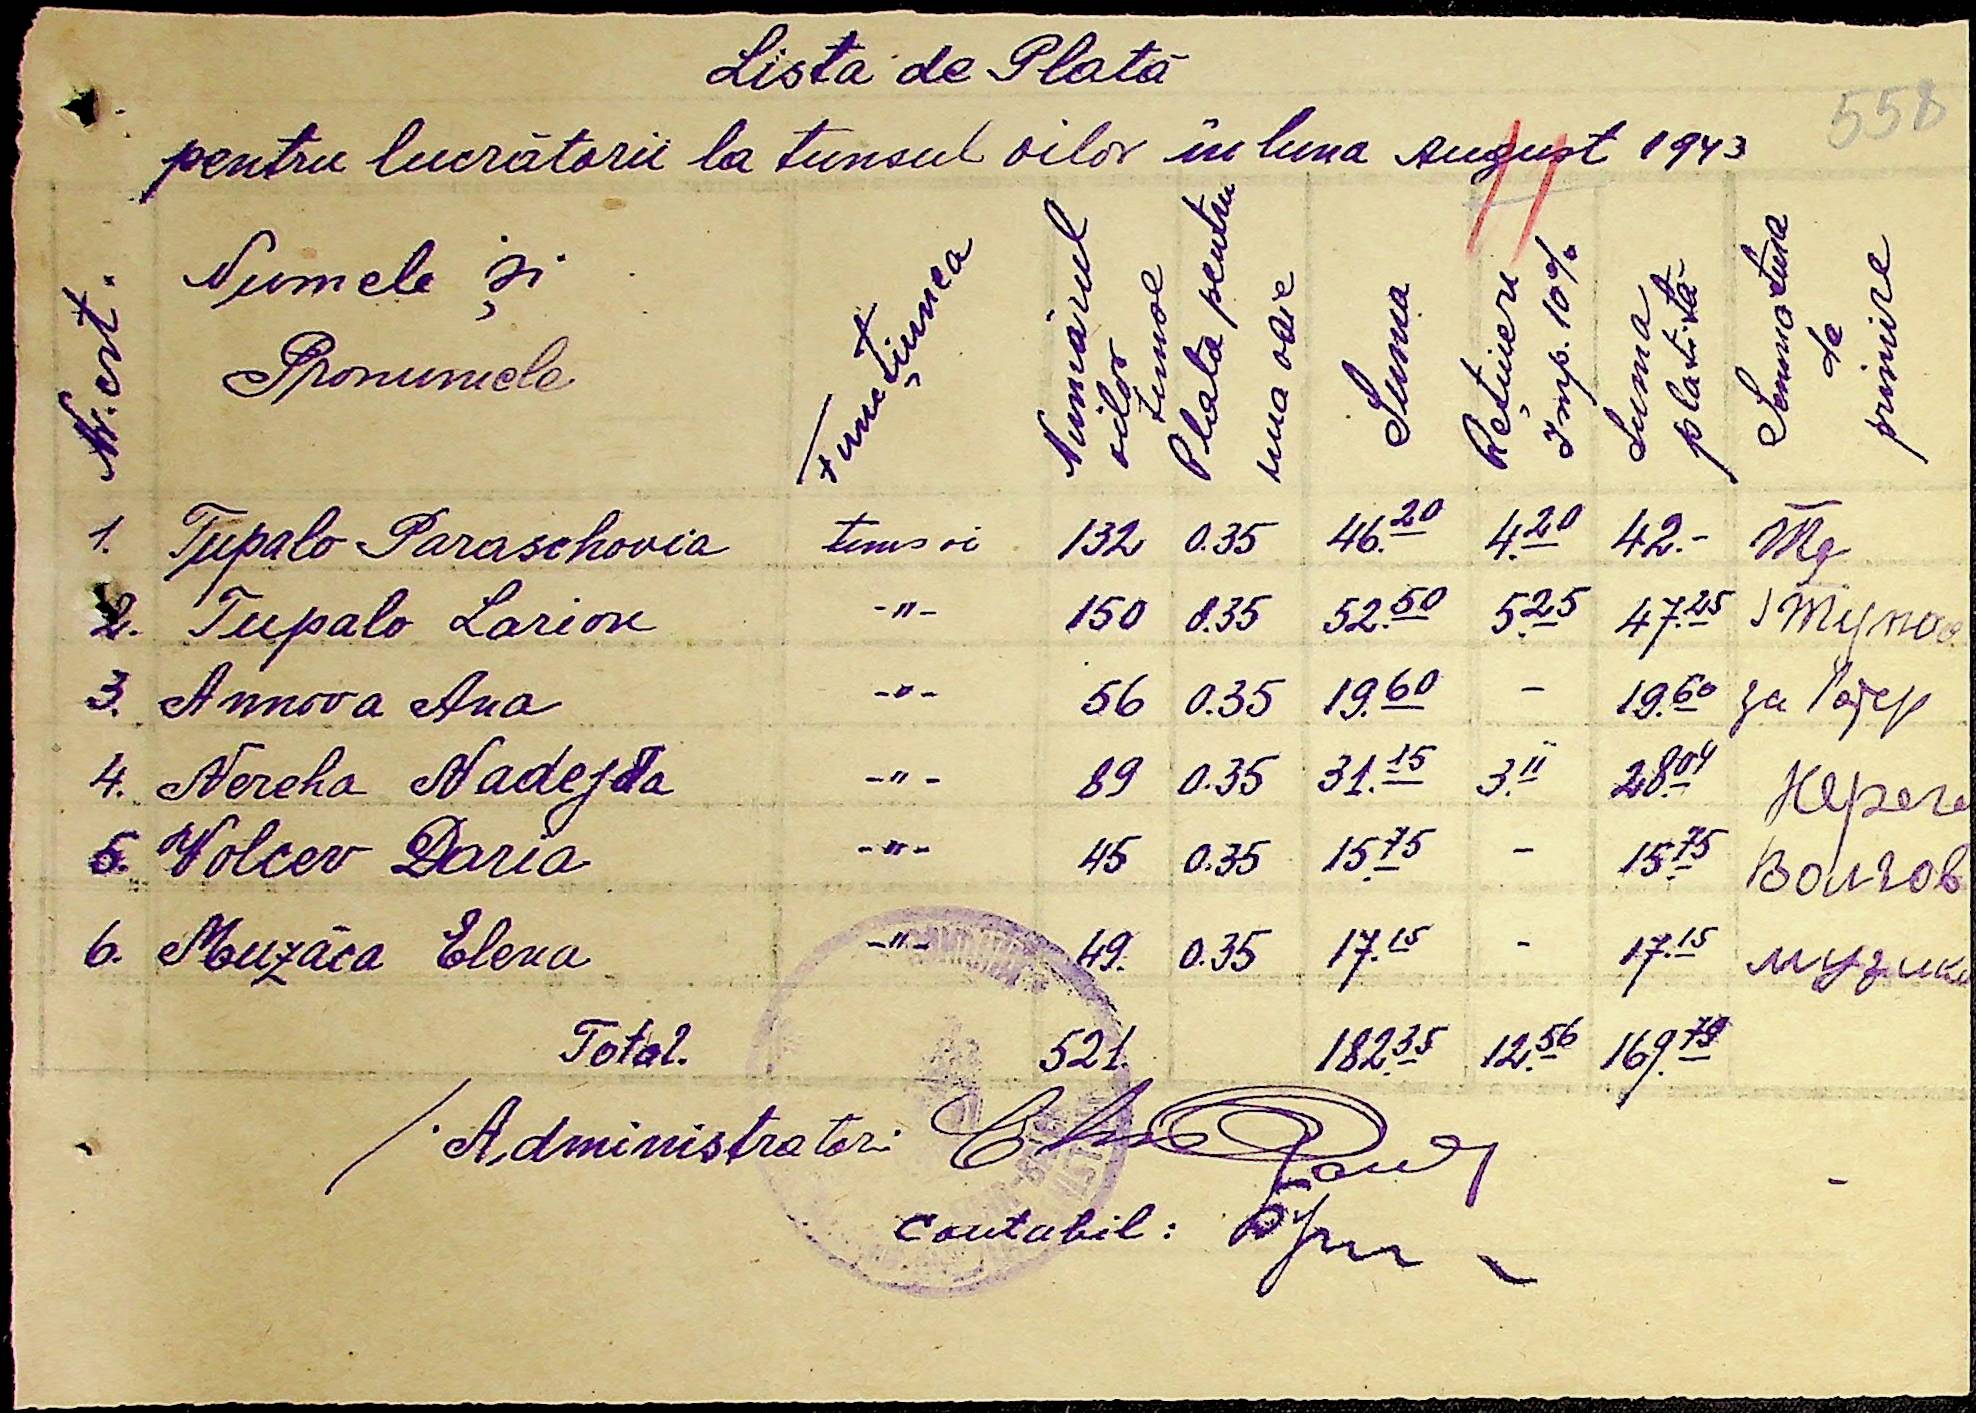 Lista de Plată
558
pentru lucrătorii la tunsul oilor în luna August 1943
Nr. crt. Numele și Pronumele Funcțiunea Numărul oilor tunse Plata pentru una oaie Suma Rețineri Imp. 10% Suma platită Semnatura de primire
1. Tupalo Paraschovia tuns oi 132 0.35 46.20 4.20 42.-
2. Tupalo Larion -"- 150 0.35 52.50 5.25 47.25
3. Annova Ana -"- 56 0.35 19.60 - 19.60 за
4. Nereha Nadejda -"- 89 0.35 31.15 3.11 28.04
5. Volcev Daria -"- 45 0.35 15.75 - 15.75 Волчов
6. Muzâca Elena -"- 49. 0.35 17.15 - 17.15 музика
Total. 521. 182.35 12.56 169.79
Administrator:
Contabil: